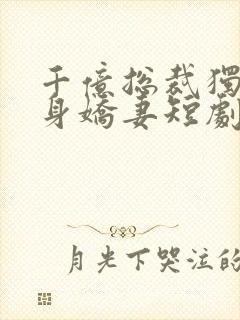 千億総裁獨
身嬌妻短劇
月光下哭泣的